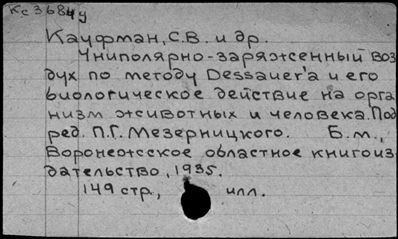 Кс3684у
Кауфман, С.В. и др.
Униполярно-заряженный воз
дух по методу Dessauer'a и его
биологическое действие на орга
низм животных и человека. Под
ред. П.Г. Мезерницкого. Б.м.,
Воронежское областное книгоиз
дательство, 1935.
149 стр., илл.